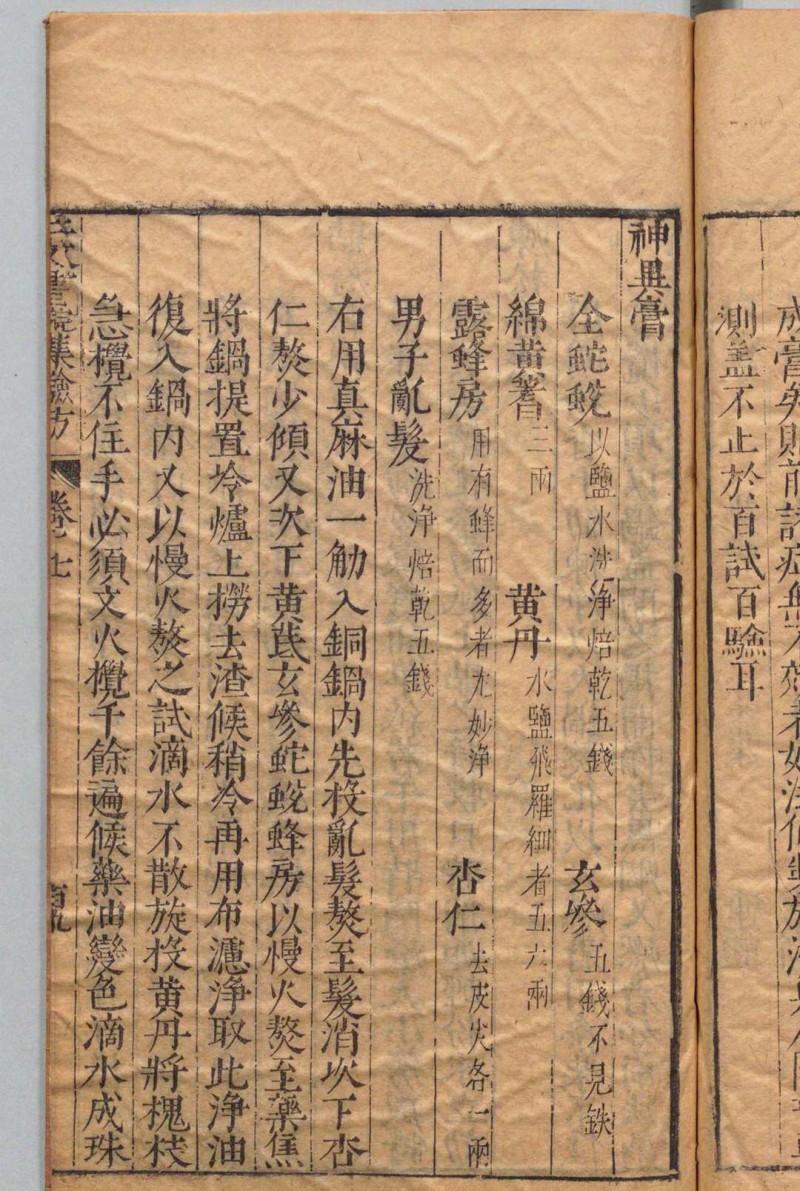 成膏矣則前諸症無不效者如法修製於治
測蓋不止於百試百驗耳
神異膏
全蛇蛻以鹽水洗淨焙乾五錢 玄參五錢不見鉄
綿黄耆三兩 黄丹水鹽飛羅細者五六兩
露蜂房用有蜂而多者尤妙淨 杏仁去皮尖各一兩
男子亂髮洗淨焙乾五錢
右用真麻油一觔入銅鍋内先投亂髮熬至髮消次下杏
仁熬少傾又次下黄茋玄參蛇蛻蜂房以慢火熬至藥焦
將鍋提置冷爐上撈去渣候稍冷再用布濾淨取此淨油
復入鍋内又以慢火熬之試滴水不散旋投黄丹將槐枝
急攪不住手必須文火攪千餘遍候藥油變色滴水成珠
醫院集驗方 卷七